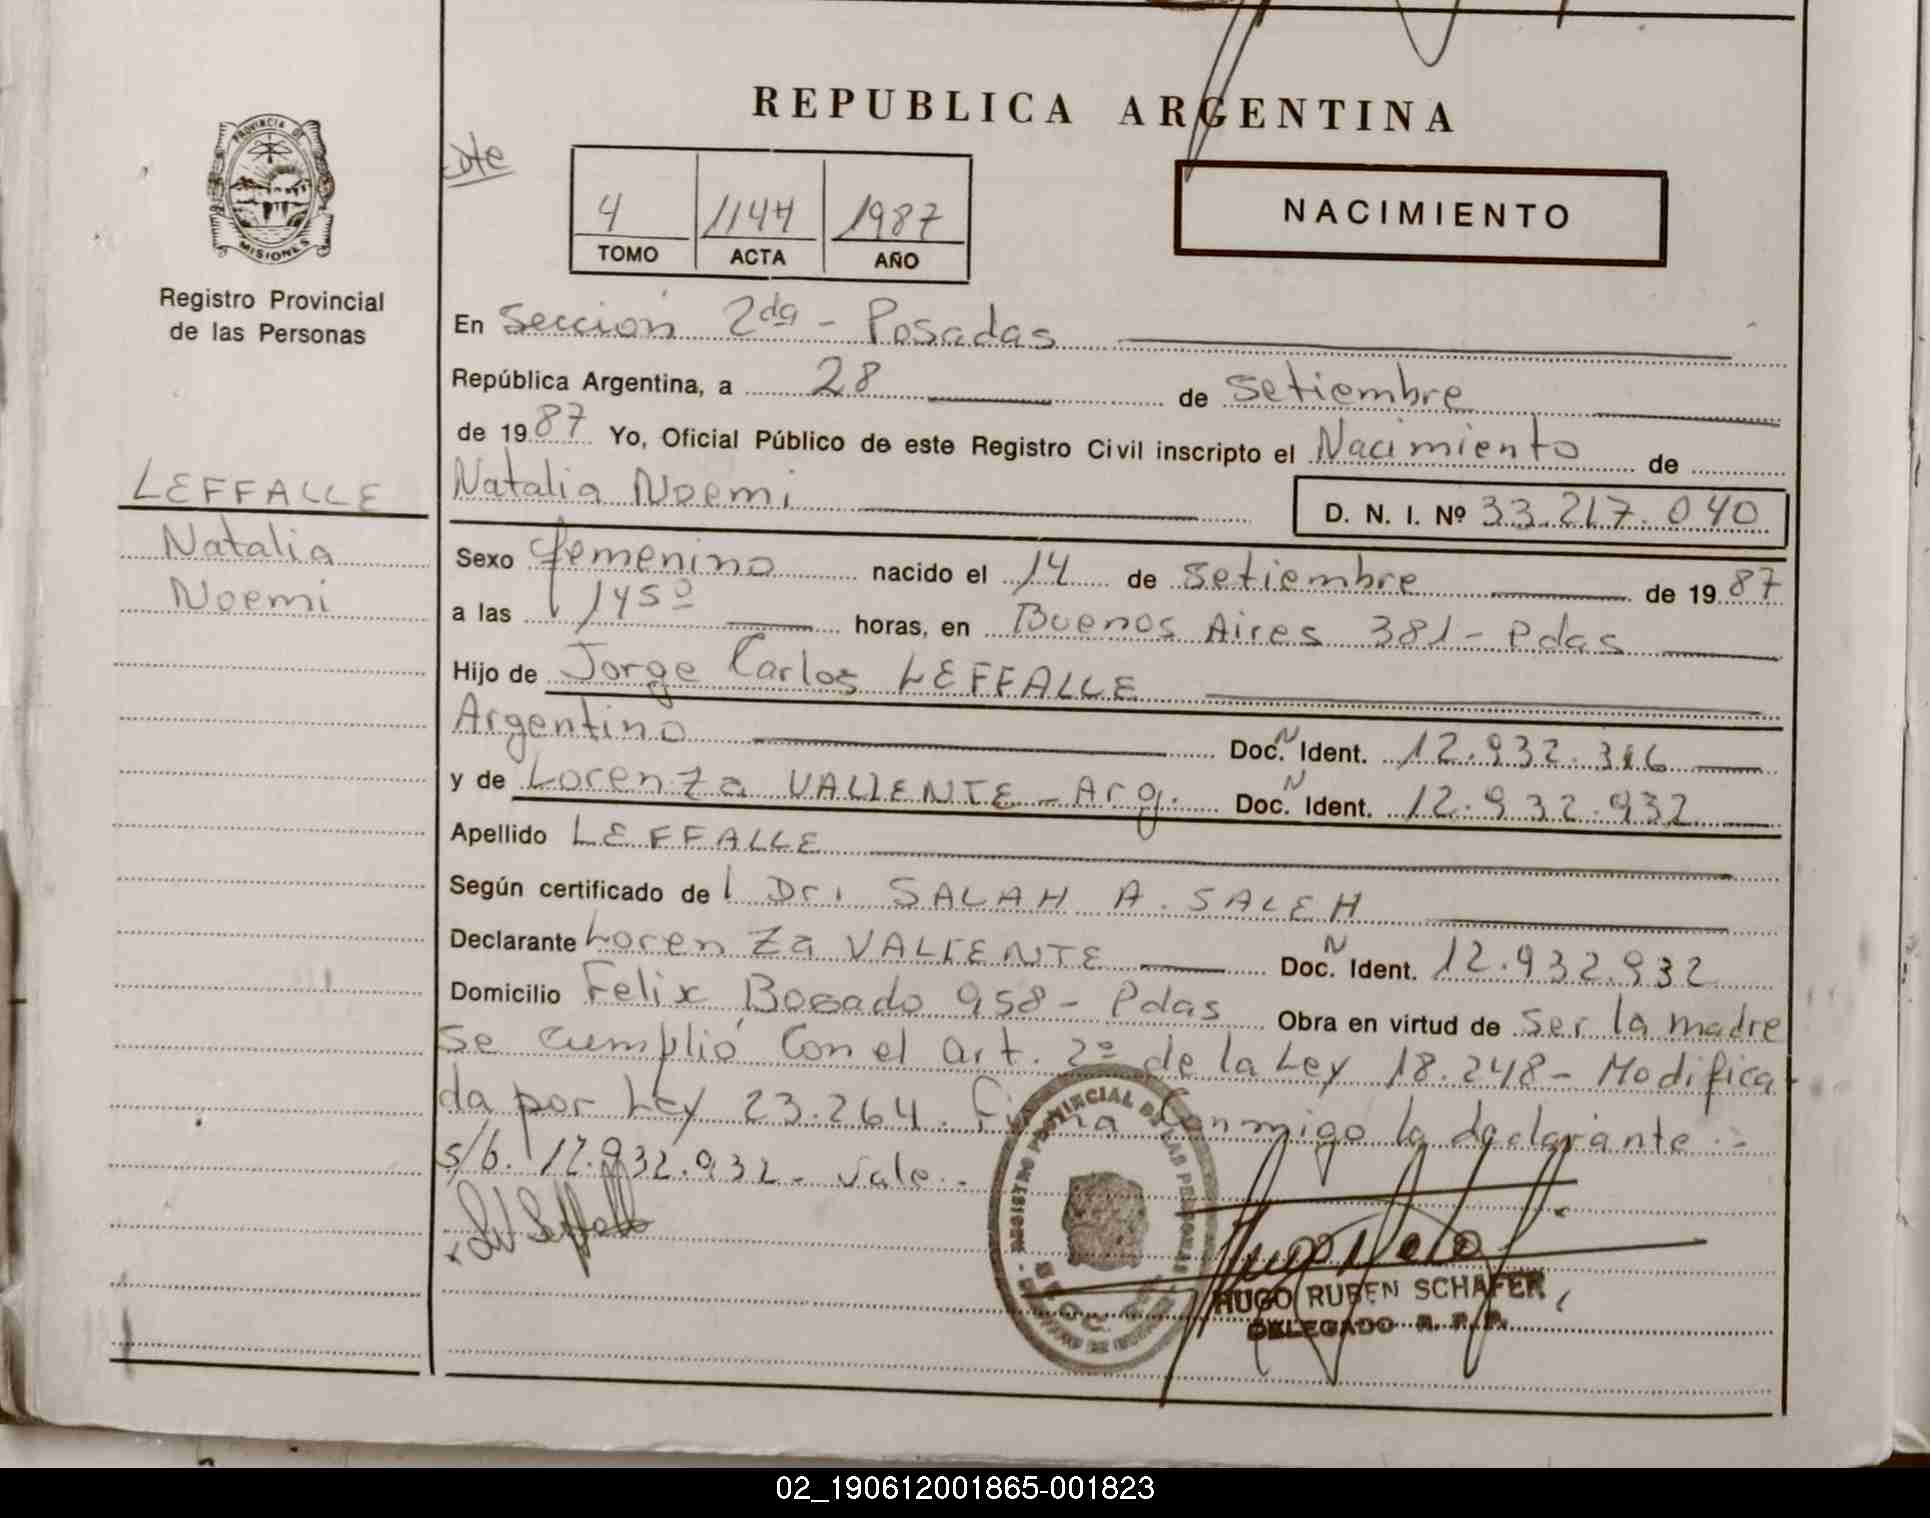 REPUBLICA ARGENTINA
PROVINCIA DE
MISIONES
Registro Provincial
de las Personas
Dte
4 1144 1987
TOMO ACTA AÑO
NACIMIENTO
En Sección 2da - Posadas
República Argentina, a 28 de Setiembre
de 1987 Yo, Oficial Público de este Registro Civil inscripto el Nacimiento de
LEFFALLE
Natalia
Noemi
Natalia Noemi D. N. I. Nº 33.217.040
Sexo femenino nacido el 14 de Setiembre de 1987
a las 1450 horas, en Buenos Aires 381 - Pdas
Hijo de Jorge Carlos LEFFALLE
Argentino Doc. N Ident. 12.932.316
y de Lorenza VALIENTE - Arg. Doc. N Ident. 12.932.932
Apellido LEFFALLE
Según certificado del Dr. SALAH A. SALEH
Declarante Lorenza VALIENTE Doc. N Ident. 12.932.932
Domicilio Felix Bogado 958 - Pdas Obra en virtud de Ser la madre
Se cumplió con el art. 2º de la Ley 18.248 - Modifica
da por Ley 23.264. Firma Conmigo la declarante.-
s/b. 12.932.932 - Vale.-
REGISTRO PROVINCIAL DE LAS PERSONAS
HUGO RUBEN SCHAFER
DELEGADO R. P. P.
02_190612001865-001823